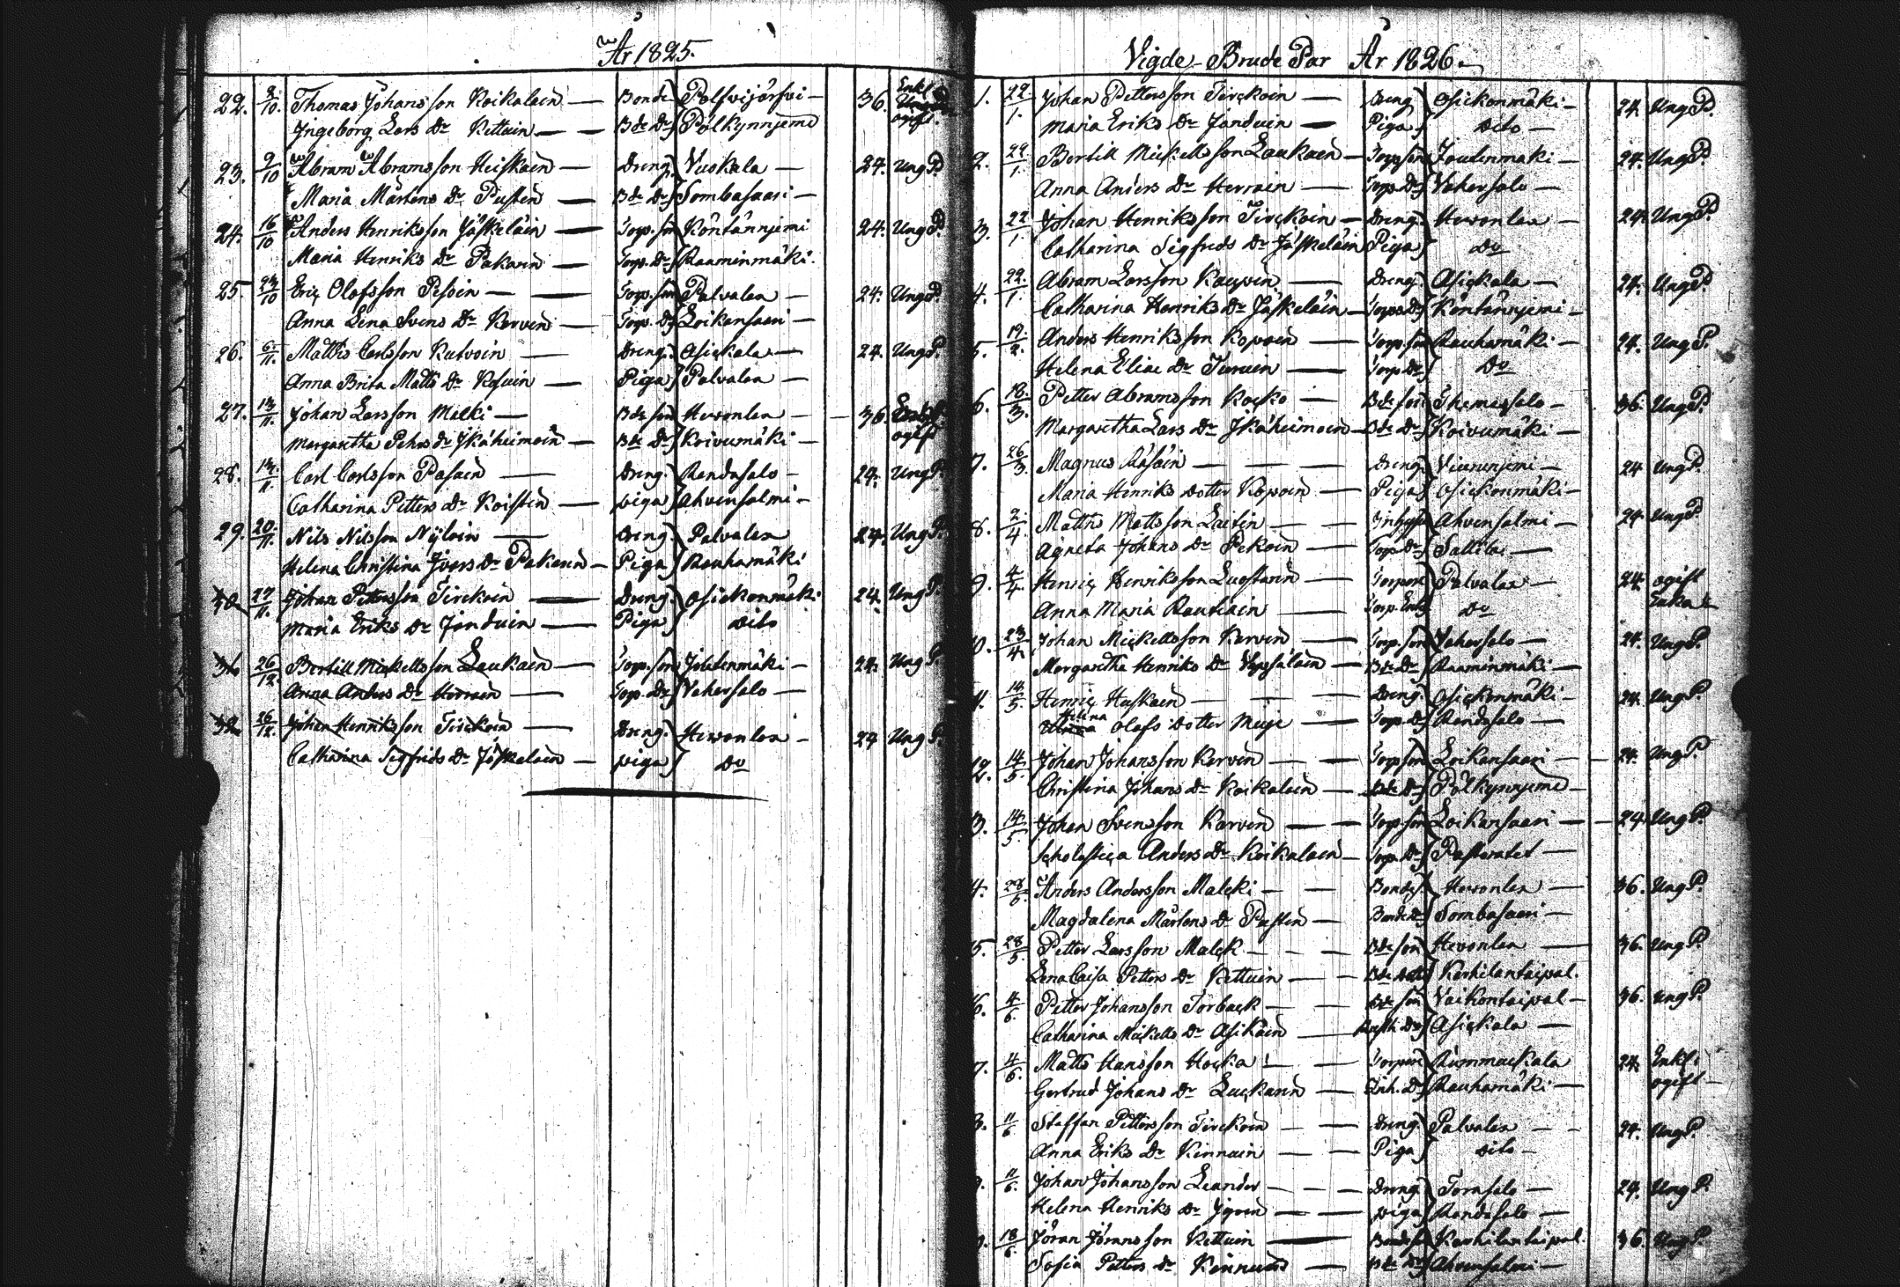 År 1825.
22. 2/10 Thomas Johansson Koikalain Bonde Polsvijärfvi 36. Enkl.
Ingeborg Lars Dr Kettuin Bde Dr Pölkynnjemi ogift.
23. 9/10 Abram Abramsson Heiskain Dreng Vuokala 24. Ung P.
Maria Mårtens Dr Pustin Bde Dr Sombasaari
24. 16/10 Anders Henriksson Jäskeläin Torp. son Köntännjemi 24. Ung P.
Maria Henriks Dr Pakarin Torp. Dr Raaminmäki.
25. 23/10 Eric Olofsson Pesoin Torp. son Palvalax 24. Ung P.
Anna Lena Svens Dr Karvin Torp. Dr Loikansaari
26. 6/11. Matths Carlsson Kutvoin Dreng. Asickala 24. Ung P.
Anna Brita Matts Dr Kosuin Piga Palvalax
27. 13/11. Johan Larsson Malki Bde son Hevonlax 36.
Margaretha Pehrs Dr Ikäheimoin Bde Dr Koivumäki ogift
28. 13/11. Carl Carlsson Pasain Dreng Randasalo 24. Ung P.
Catharina Petters Dr Koistin piga Ahvensalmi
29. 20/11. Nils Nilsson Nyloin Dreng Palvalax 24. Ung P.
Helena Christina Ivars Dr Pakarin Piga Rauhamäki
30. 27/11. Johan Pettersson Tirckoin Dreng Asickonmäki 24. Ung P.
Maria Eriks Dr Janduin Piga Dito
31. 26/12 Bertill Mickellsson Laukain Torp. son Joutenmäki 24. Ung P.
Anna Anders Dr Herrain Torp. Dr Vahersalo
32. 26/12. Johan Henriksson Tirckoin Dreng. Hevonlax 24 Ung P.
Catharina Sigfrids Dr Jäskeläin piga Do
Vigde Brude Par År 1826.
1. 22/1. Johan Pettersson Tirckoin Dreng Asickonmäki 24. Ung P.
Maria Eriks Dr Janduin Piga Dito
2. 22/1. Bertil Mickellsson Laukain Torpson Joutenmäki 24. Ung P.
Anna Anders Dr Herrain Torp. Dr Vahersalo
3. 22/1. Johan Henriksson Tirckoin Dreng. Hevonlax 24. Ung P.
Catharina Sigfrids Dr Jäskeläin Piga Do
4. 22/1. Abram Larsson Kaupin Dreng Asickala 24. Ung P
Catharina Henriks Dr Jäskeläin Torps Dr Köntännjemi
5. 19/2. Anders Henriksson Kopoin Torp. son Rauhamäki 24. Ung P.
Helena Elias Dr Turuin Torp Dr Do
6. 18/3. Petter Abramsson Kocko Bde son Ihamasalo 36. Ung P.
Margaretha Lars Dr Ikäheimoin Bde Dr Koivumäki
7. 26/3. Magnus Räsäin Dreng. Vierunjemi 24 Ung P.
Maria Henriks Dotter Kopoin Piga Asickonmäki
8. 2/4. Matths Mattsson Laitin Inhyse Ahvensalmi 24. Ung P.
Agneta Johans Dr Pekoin Torp Dr Sallila
9. 4/4. Henric Henriksson Lustarin Torpare Palvalax 24. ogift
Anna Maria Rautiain Do Enka
10. 23/4. Johan Mickellsson Karvin Torp. son Vahersalo 24. Ung P.
Margaretha Henriks Dr Upsälain Bde Dr Raaminmäki
11. 14/5 Henric Huskain Dreng. Asickonmäki 24. Ung P
Helena Olofs Dotter Muje Torp. Dr Randasalo
12. 14/5. Johan Johansson Karvin Torpson Loikansaari 24. Ung P
Christina Johans Dr Koikalain Bde Dr Pölkynnjemi
13. 14/5 Johan Svensson Karvin Torp son Loikansaari 24 Ung P
Scholastica Anders Dr Koikalain Torp. Dr Pastoratet
14. 28/5. Anders Andersson Malcki Bondes. Hevonlax 36. Ung P.
Magdalena Mårtens Dr Pustin Sombasaari
15. 28/5 Petter Larsson Malck Bde son Hevonlax 36. Ung P.
Lena Caisa Petters Dr Kettuin Kerkilantaipal.
16. 4/6. Petter Johansson Torback Bde son Vaikontaipal 36. Ung P.
Catharina Mickells Dr Asikain Asickala
17. 4/6. Matts Hansson Hocka Torpare Kummackala 24. Enkl.
Gertrud Johans Dr Luckarin Inh. Dr Rauhamäki ogift
18. 11/6 Staffan Pettersson Tirckoin Dreng Palvalax 24. Ung P.
Anna Eriks Dr Kinnuin Piga Dito
19. 11/6. Johan Johansson Leander Dreng Tornsalo 24. Ung P.
Helena Henriks Dr piga Randasalo
20. 18/6. Jöran Jöransson Kettuin Kerkilantaipal. 36. Ung P.
Sofia Petters Dr Kinnuin Bde Dr Ahvensalmi